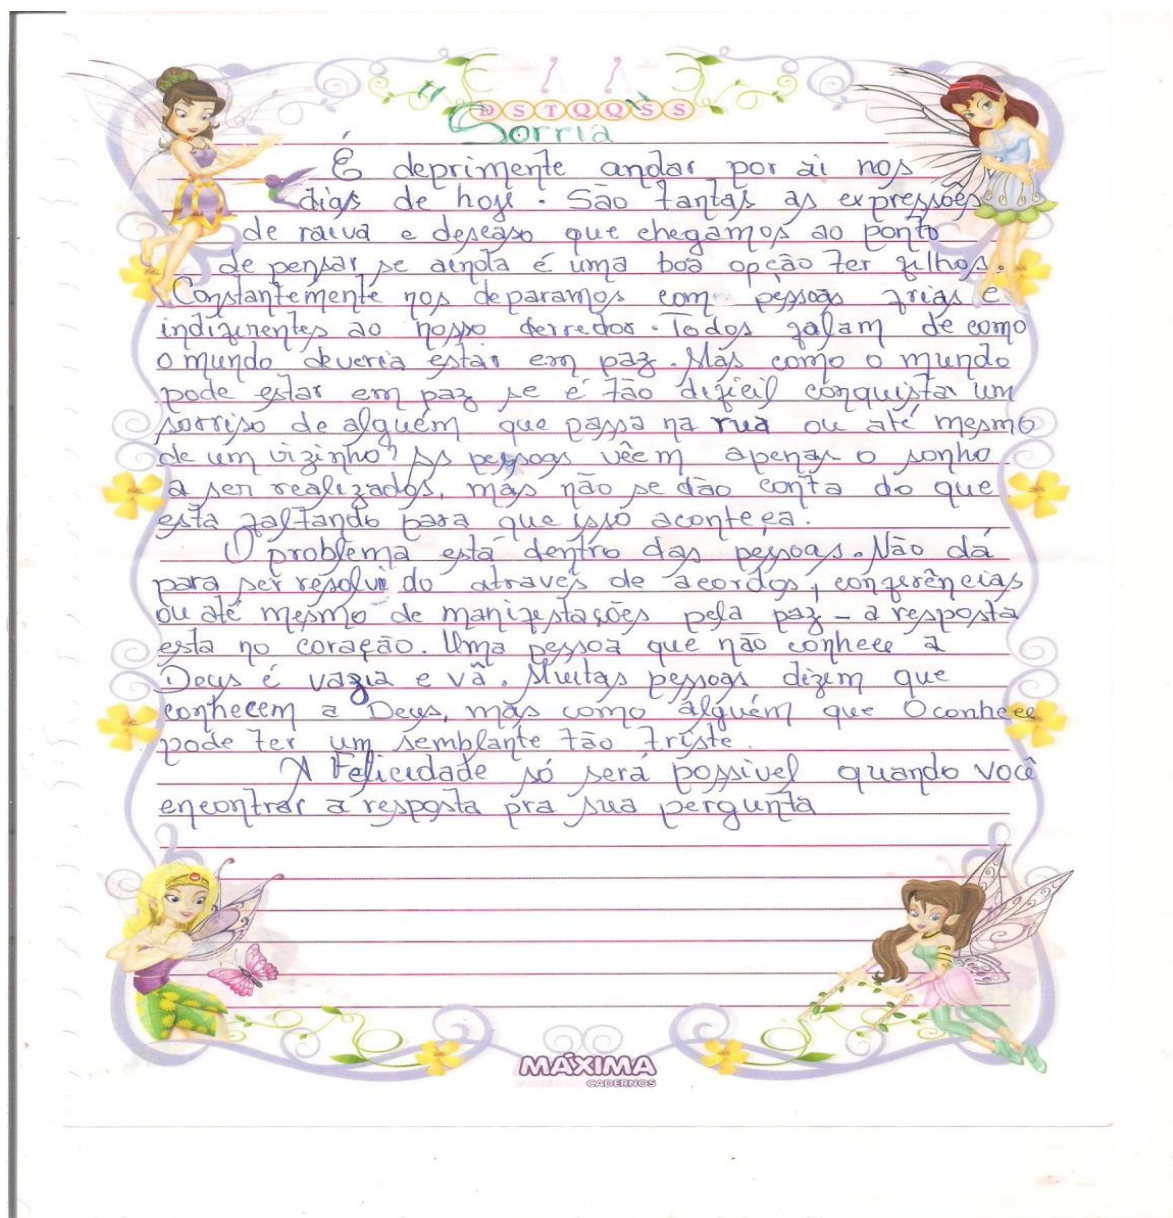 D S T Q Q S S
"Sorria"
É deprimente andar por ai nos
dias de hoje. São tantas as expressões
de raiva e descaso que chegamos ao ponto
de pensar se ainda é uma boa opção ter filhos.
Constantemente nos deparamos com pessoas frias e
indiferentes ao nosso derredor. Todos falam de como
o mundo deveria estar em paz. Mas como o mundo
pode estar em paz se é tão dificil conquistar um
sorriso de alguém que passa na rua ou até mesmo
de um vizinho? As pessoas vêem apenas o sonho
a ser realizados, mas não se dão conta do que
esta faltando para que isso aconteça.
O problema está dentro das pessoas. Não dá
para ser resolvido através de acordos, conferências
ou até mesmo de manifestações pela paz – a resposta
esta no coração. Uma pessoa que não conhece a
Deus é vazia e vã. Muitas pessoas dizem que
conhecem a Deus, mas como alguém que O conhece
pode ter um semblante tão triste.
A Felicidade só será possivel quando você
encontrar a resposta pra sua pergunta
MÁXIMA
CADERNOS